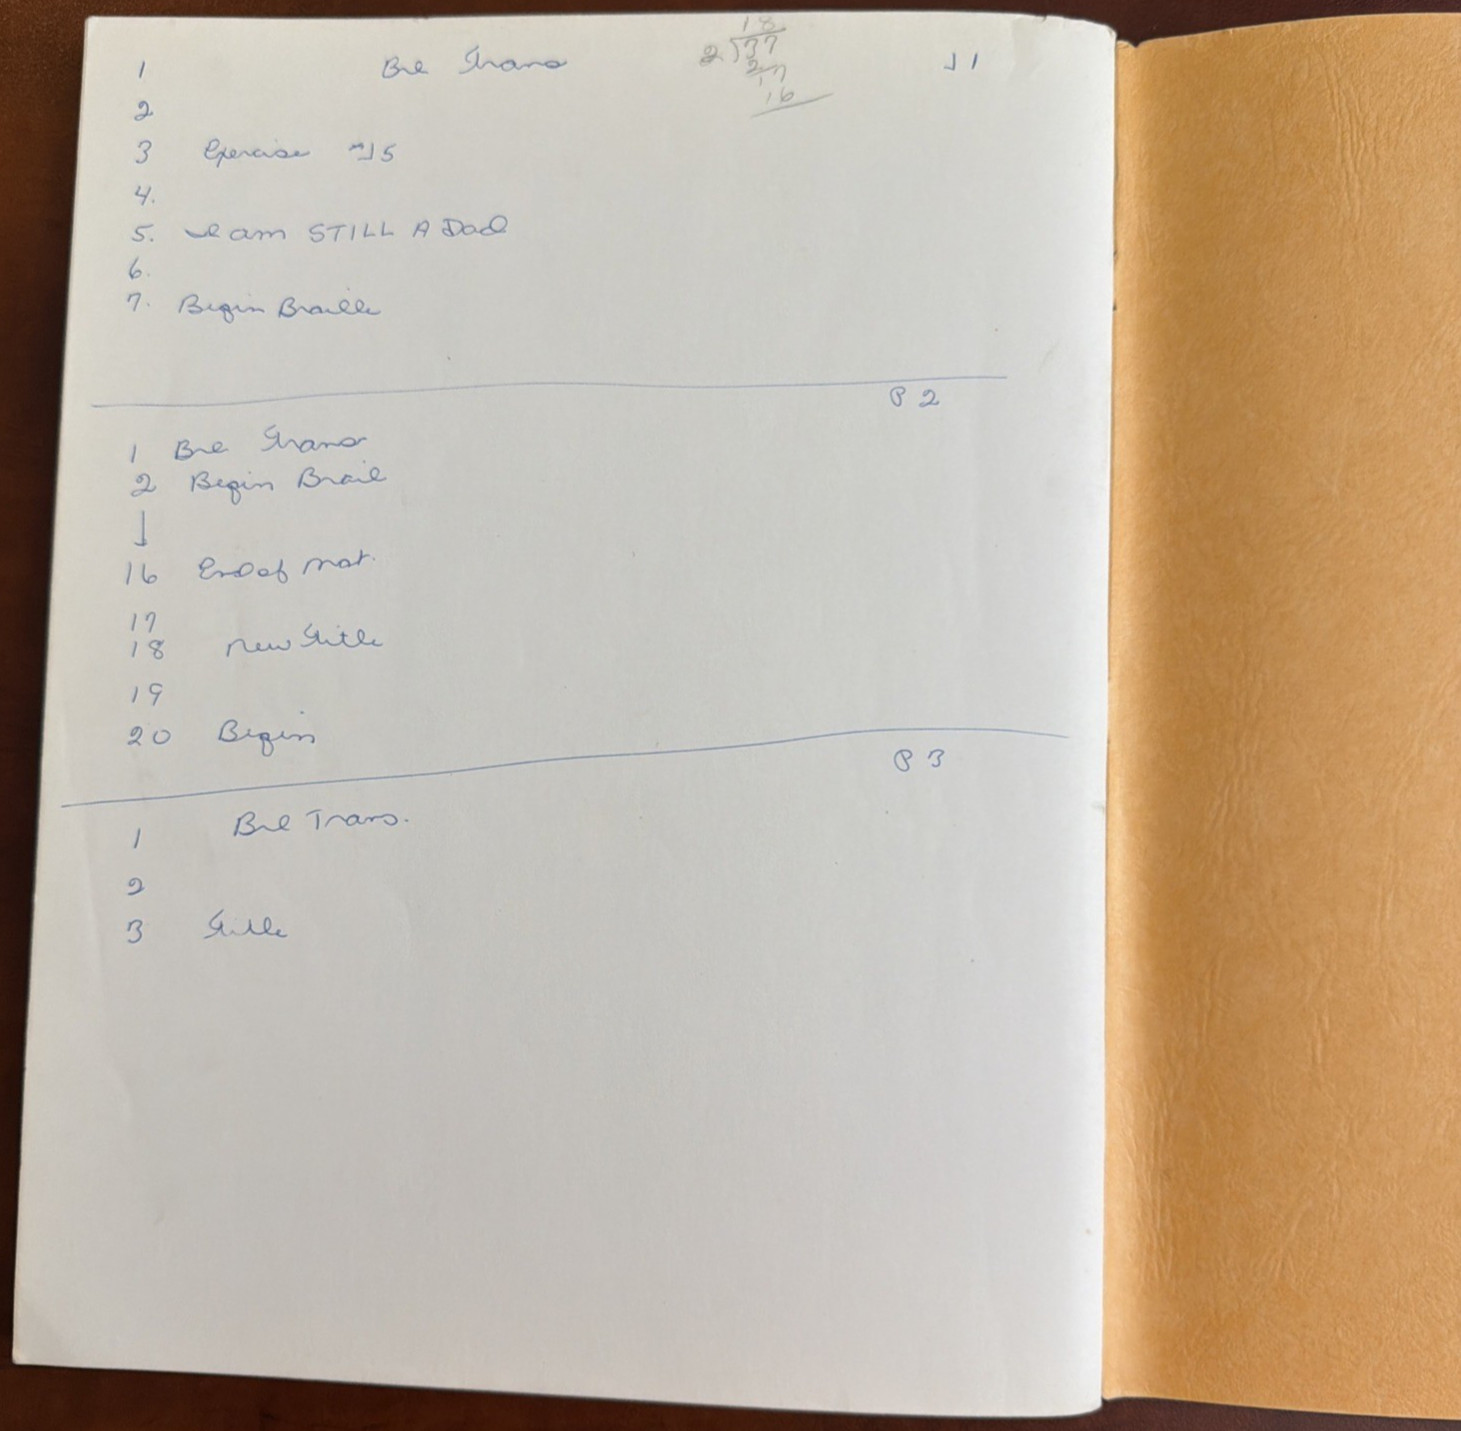 1 Brl Trans J1
18
2)37
2
17
16
2
3 Exercise #15
4.
5. I am STILL A Dad
6.
7. Begin Braille
P 2
1 Brl Trans
2 Begin Brail
16 End of mat.
17
18 New Title
19
20 Begin
P 3
1 Brl Trans.
2
3 Title